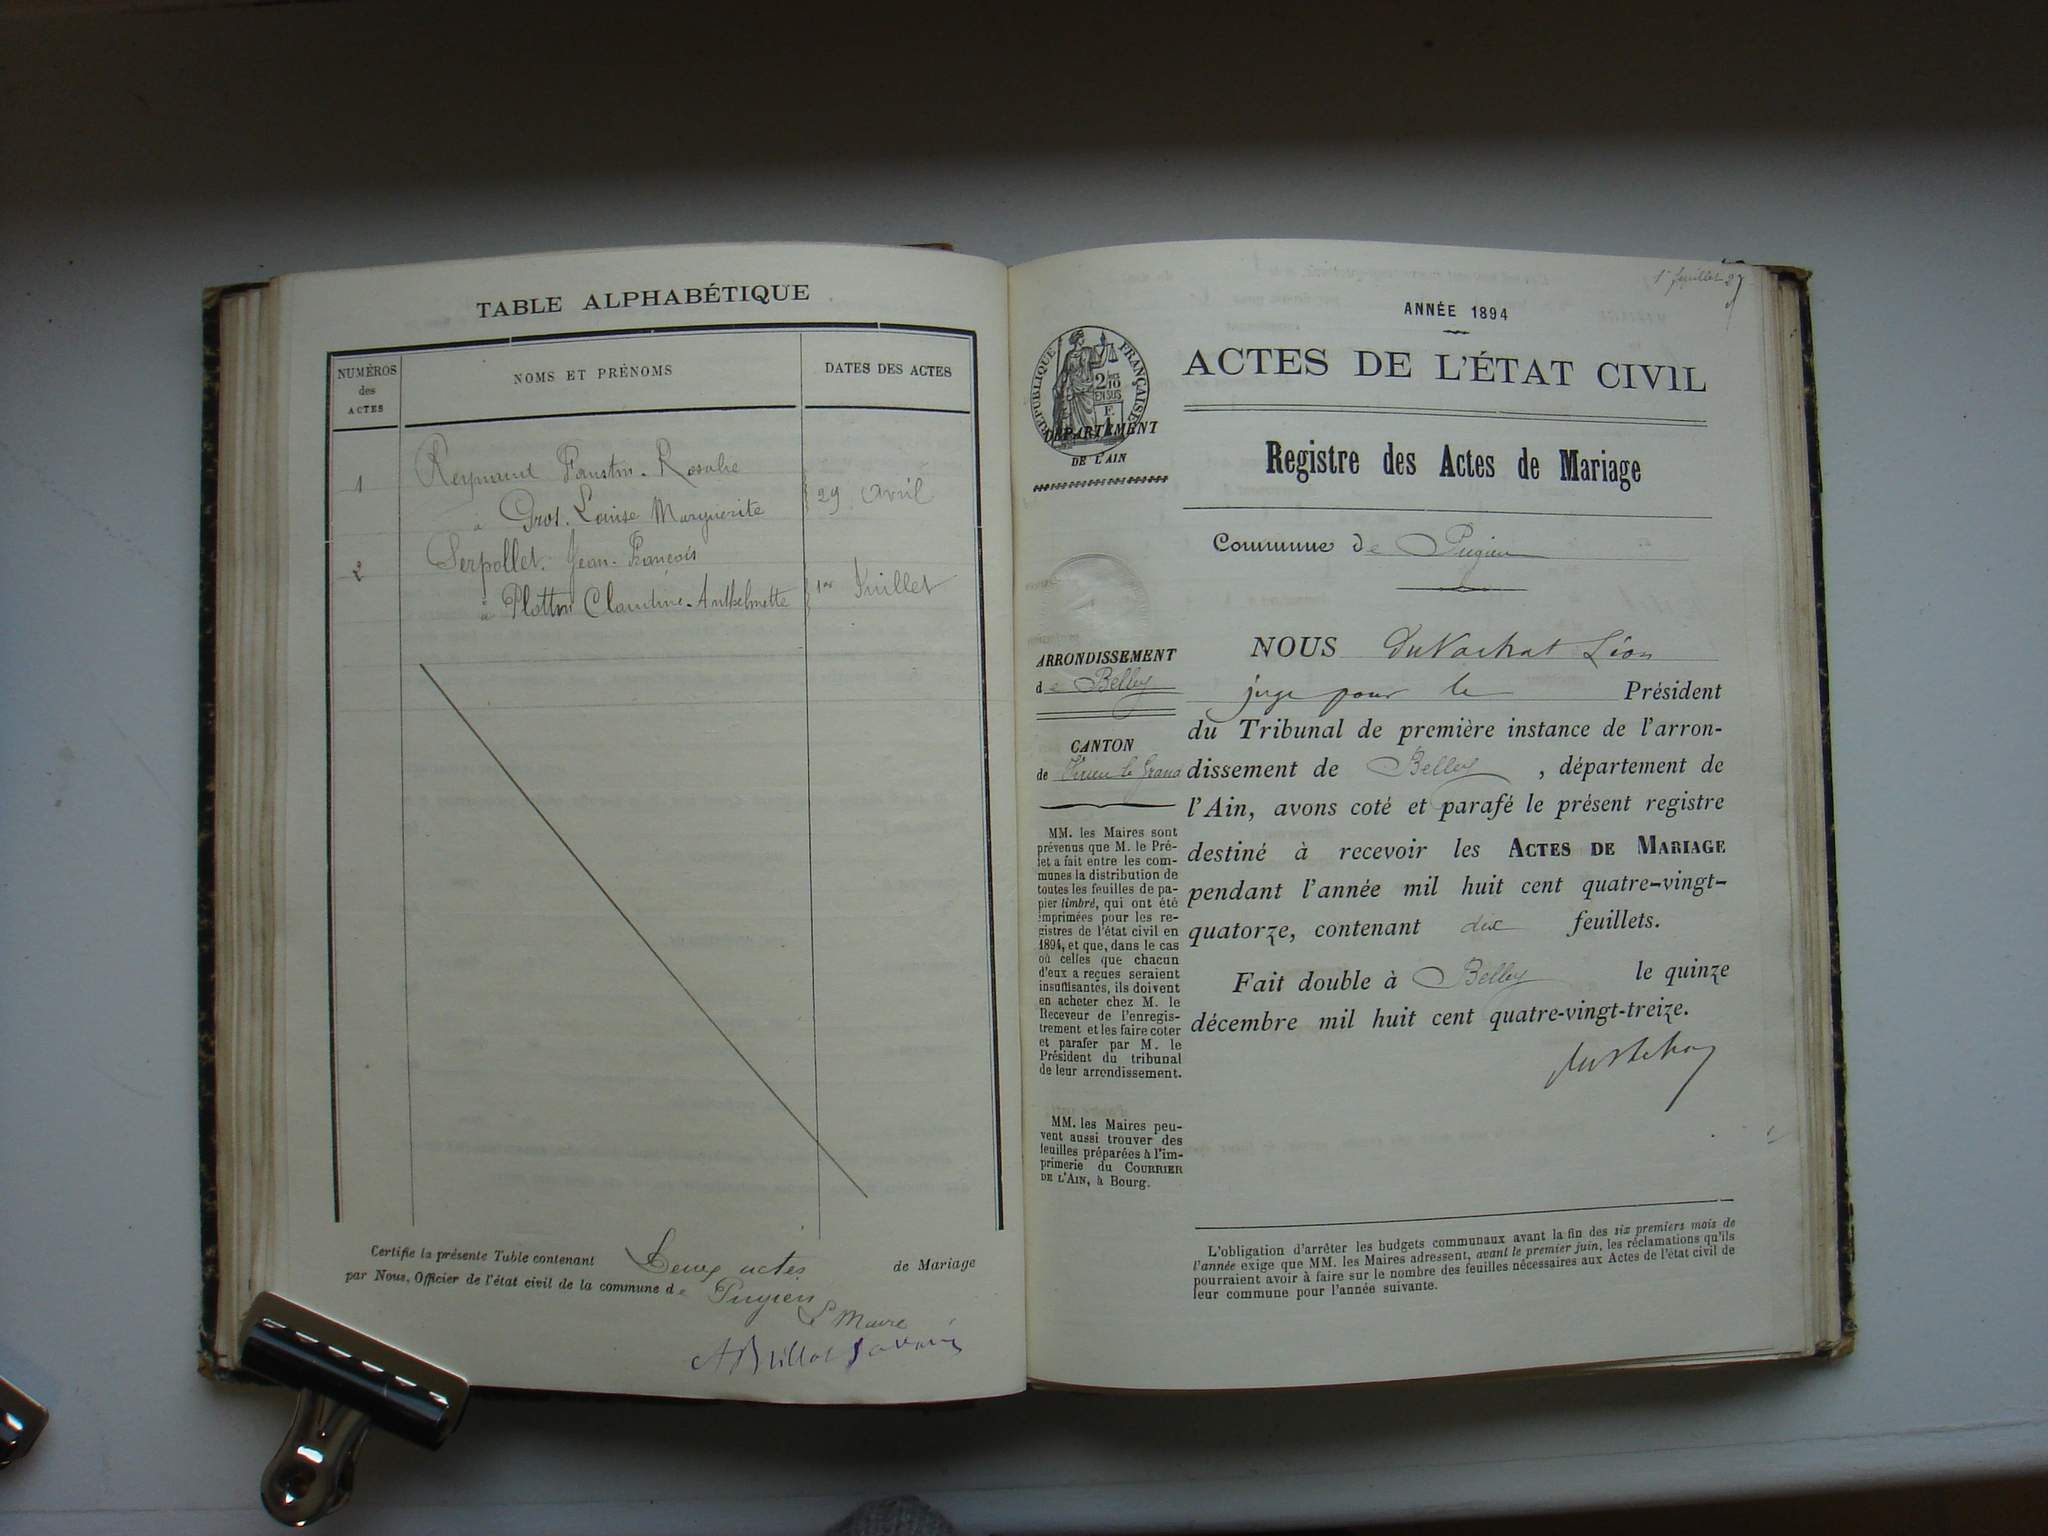 TABLE ALPHABÉTIQUE
NUMÉROS
des
ACTES
NOMS ET PRÉNOMS
DATES DES ACTES
1
Reymond Faustin-Rosalie
à Gros Louise Marguerite
29 avril
2
Serpollet Jean-François
à Plottin Claudine-Anthelmette
1er Juillet
Certifie la présente Table contenant Deux actes de Mariage
par Nous, Officier de l'état civil de la commune de Pugieu
Le Maire
A Brillat Savarin
1er feuillet
ANNÉE 1894
RÉPUBLIQUE FRANÇAISE
2/10
EN SUS
DÉPARTEMENT
DE L'AIN
ACTES DE L'ÉTAT CIVIL
Registre des Actes de Mariage
Commune de Pugieu
ARRONDISSEMENT
de Belley
CANTON
de Virieu le Grand
MM. les Maires sont
prévenus que M. le Pré-
fet a fait entre les com-
munes la distribution de
toutes les feuilles de pa-
pier timbré, qui ont été
imprimées pour les re-
gistres de l'état civil en
1894, et que, dans le cas
où celles que chacun
d'eux a reçues seraient
insuffisantes, ils doivent
en acheter chez M. le
Receveur de l'enregis-
trement et les faire coter
et parafer par M. le
Président du tribunal
de leur arrondissement.
MM. les Maires peu-
vent aussi trouver des
feuilles préparées à l'im-
primerie du COURRIER
DE L'AIN, à Bourg.
NOUS DuVachat Léon
juge pour le Président
du Tribunal de première instance de l'arron-
dissement de Belley, département de
l'Ain, avons coté et parafé le présent registre
destiné à recevoir les ACTES DE MARIAGE
pendant l'année mil huit cent quatre-vingt-
quatorze, contenant dix feuillets.
Fait double à Belley le quinze
décembre mil huit cent quatre-vingt-treize.
L'obligation d'arrêter les budgets communaux avant la fin des six premiers mois de
l'année exige que MM. les Maires adressent, avant le premier juin, les réclamations qu'ils
pourraient avoir à faire sur le nombre des feuilles nécessaires aux Actes de l'état civil de
leur commune pour l'année suivante.